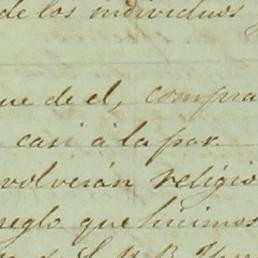 de los individuos
ue de el, compra
casi á la par.
volverán religio
reglo que hicimos